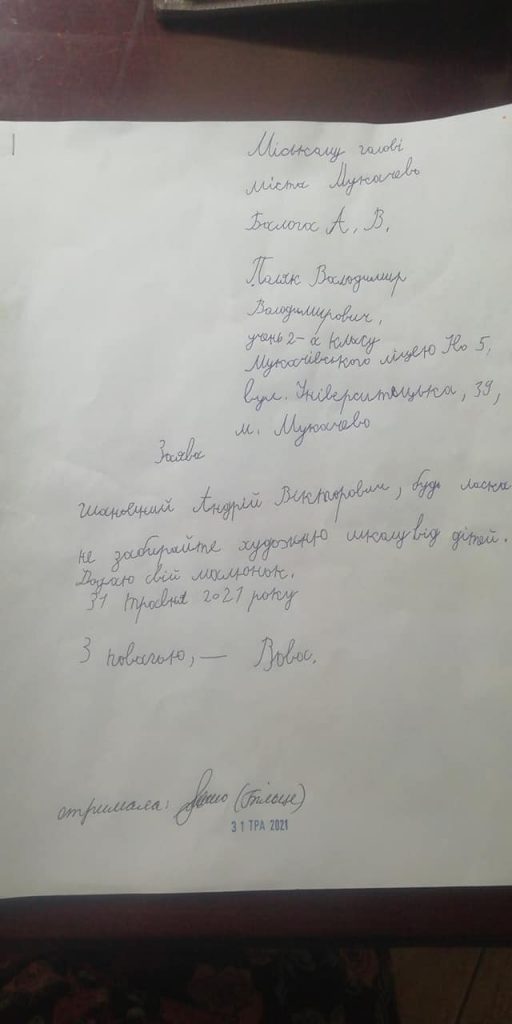 Міському голові
міста Мукачево
Балога А. В.
Паляк Володимир
Володимирович,
учень 2-а класу
Мукачівського ліцею No 5,
вул. Університецька, 39,
м. Мукачево
Заява
Шановний Андрій Вікторович, будь ласка
не забирайте художню школу від дітей.
Додаю свій малюнок.
31 травня 2021 року
З повагою, — Вова.
отримала:
31 ТРА 2021